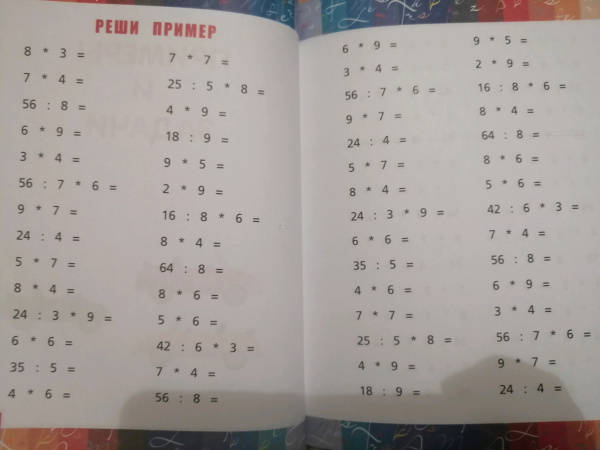 РЕШИ ПРИМЕР
8 * 3 =
7 * 4 =
56 : 8 =
6 * 9 =
3 * 4 =
56 : 7 * 6 =
9 * 7 =
24 : 4 =
5 * 7 =
8 * 4 =
24 : 3 * 9 =
6 * 6 =
35 : 5 =
4 * 6 =
7 * 7 =
25 : 5 * 8 =
4 * 9 =
18 : 9 =
9 * 5 =
2 * 9 =
16 : 8 * 6 =
8 * 4 =
64 : 8 =
8 * 6 =
5 * 6 =
42 : 6 * 3 =
7 * 4 =
56 : 8 =
6 * 9 =
3 * 4 =
56 : 7 * 6 =
9 * 7 =
24 : 4 =
5 * 7 =
8 * 4 =
24 : 3 * 9 =
6 * 6 =
35 : 5 =
4 * 6 =
7 * 7 =
25 : 5 * 8 =
4 * 9 =
18 : 9 =
9 * 5 =
2 * 9 =
16 : 8 * 6 =
8 * 4 =
64 : 8 =
8 * 6 =
5 * 6 =
42 : 6 * 3 =
7 * 4 =
56 : 8 =
6 * 9 =
3 * 4 =
56 : 7 * 6 =
9 * 7 =
24 : 4 =